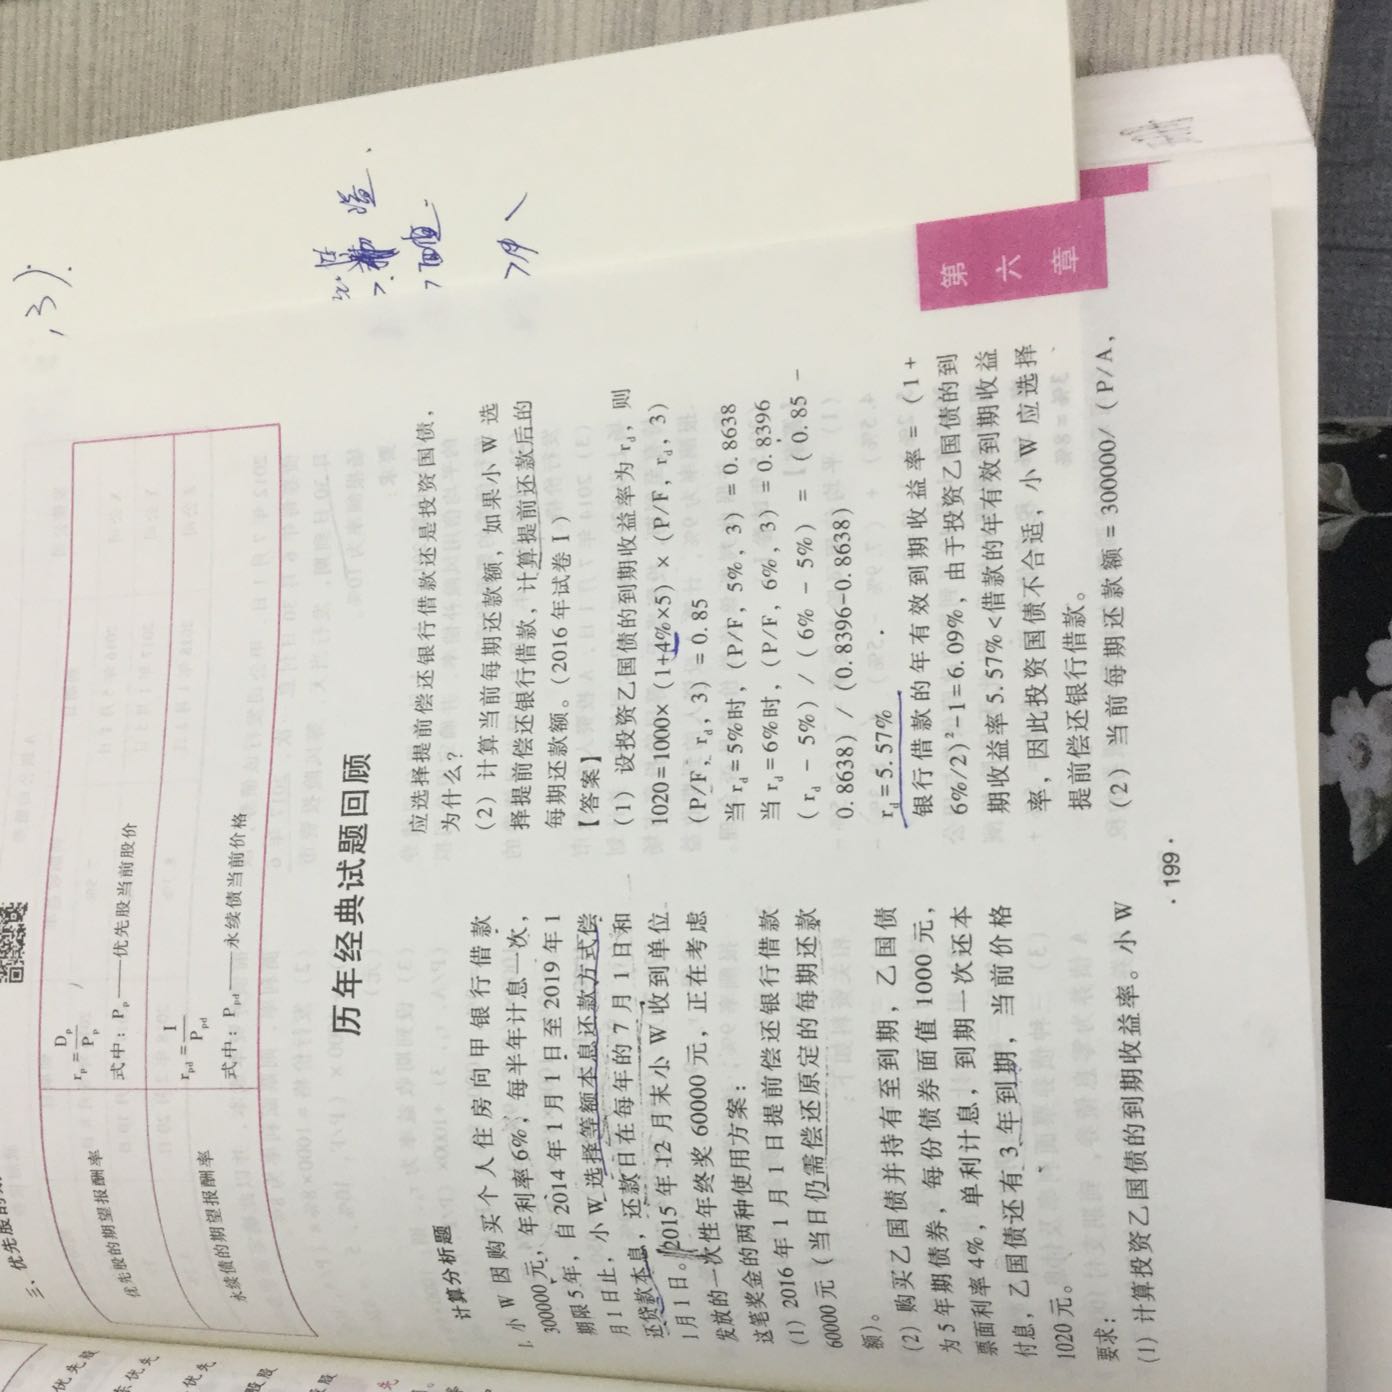 三、优先股的
优先股的期望报酬率
r_p=D_p/P_p
式中：P_p——优先股当前股价
永续债的期望报酬率
r_pd=I/P_pd
式中：P_pd——永续债当前价格
历年经典试题回顾
计算分析题
1. 小 W 因购买个人住房向甲银行借款
300000元，年利率6%，每半年计息一次，
期限5年，自2014年1月1日至2019年1
月1日止，小W选择等额本息还款方式偿
还贷款本息，还款日在每年的7月1日和
1月1日。2015年12月末小W收到单位
发放的一次性年终奖60000元，正在考虑
这笔奖金的两种使用方案：
(1) 2016年1月1日提前偿还银行借款
60000元（当日仍需偿还原定的每期还款
额）。
(2) 购买乙国债并持有至到期，乙国债
为5年期债券，每份债券面值1000元，
票面利率4%，单利计息，到期一次还本
付息，乙国债还有3年到期，当前价格
1020元。
要求：
(1) 计算投资乙国债的到期收益率。小W
应选择提前偿还银行借款还是投资国债，
为什么？
(2) 计算当前每期还款额，如果小W选
择提前偿还银行借款，计算提前还款后的
每期还款额。(2016年试卷Ⅰ)
【答案】
(1) 设投资乙国债的到期收益率为r_d，则
1020=1000×(1+4%×5)×(P/F, r_d, 3)
(P/F, r_d, 3)=0.85
当r_d=5%时，(P/F, 5%, 3)=0.8638
当r_d=6%时，(P/F, 6%, 3)=0.8396
(r_d－5%)/(6%－5%)=(0.85－
0.8638)/(0.8396-0.8638)
r_d=5.57%
银行借款的年有效到期收益率=(1+
6%/2)²-1=6.09%，由于投资乙国债的到
期收益率5.57%<借款的年有效到期收益
率，因此投资国债不合适，小W应选择
提前偿还银行借款。
(2) 当前每期还款额=300000/(P/A,
·199·
第六章
,3).